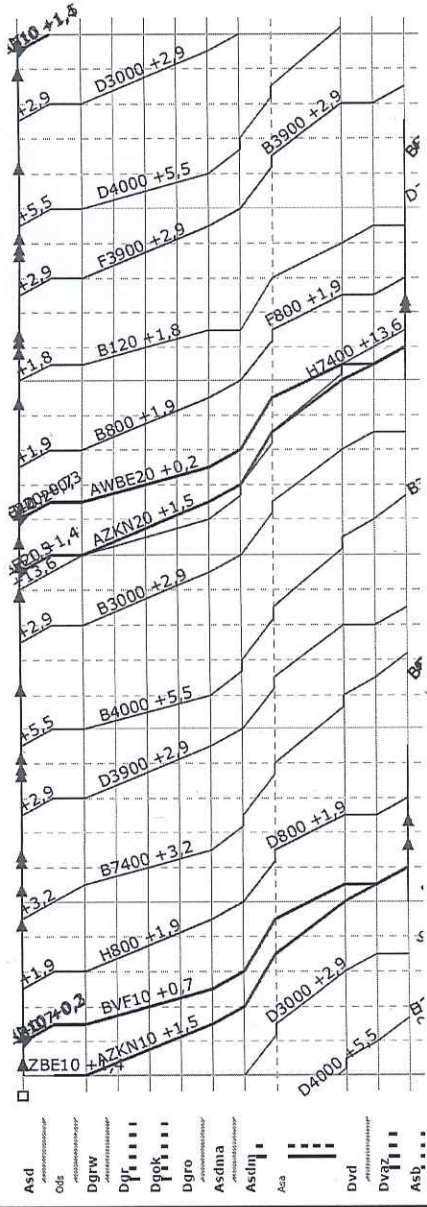 +1,5
D3000 +2,9
+2,9
B3900 +2,9
D4000 +5,5
+5,5
F3900 +2,9
+2,9
B120 +1,8
+1,8
F800 +1,9
B800 +1,9
+1,9
H7400 +13,6
AWBE20 +0,2
AZKN20 +1,5
+1,4
+13,6
B3000 +2,9
+2,9
B4000 +5,5
+5,5
D3900 +2,9
+2,9
B7400 +3,2
+3,2
D800 +1,9
H800 +1,9
+1,9
BVF10 +0,7
+0,2
ZBE10
AZKN10 +1,5
D3000 +2,9
D4000 +5,5
Asd
Ods
Dgrw
Dgr
Dgok
Dgro
Asdma
Asdm
Asa
Dvd
Dvaz
Asb